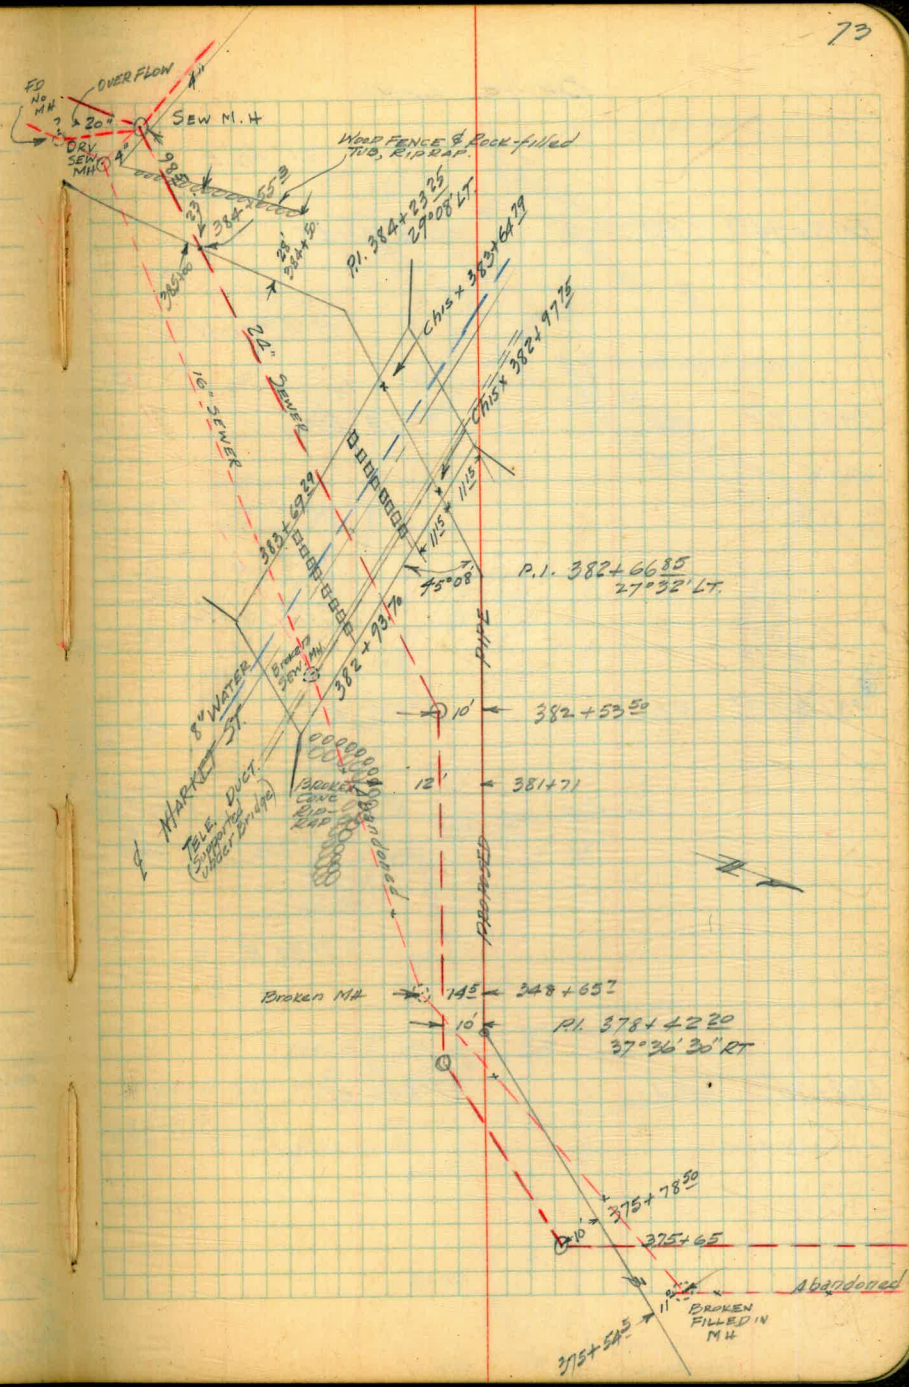 73
FD
NO
MH
OVERFLOW
4"
20"
SEW M.H
?
DRV
SEW
MH
4"
WOOD FENCE & Rock-filled
TUB, RIPRAP.
985
23'
384+55³
28'
384+50
385+00
P.I. 384+23²⁵
29°08' LT.
Chis x 383+64⁷⁹
Chis x 382+97⁷⁵
24" SEWER
16" SEWER
383+69²⁹
11¹⁵
11¹⁵
45°08'
P.I. 382+66⁸⁵
27°32' LT.
PIPE
Broken
SEW. MH
382+93.70
8" WATER
10'
382+53⁵⁰
℄ MARKET ST.
TELE. DUCT
(Supported
under Bridge)
BROKEN
CONC
RIP-
RAP
Abandoned
12'
381+71
PROPOSED
N
Broken MH
14⁵
348+65⁷
10'
P.I. 378+42²⁰
37°36'30" RT
375+78⁵⁰
10'
375+65
Abandoned
11²
BROKEN
FILLED IN
MH
375+54⁵